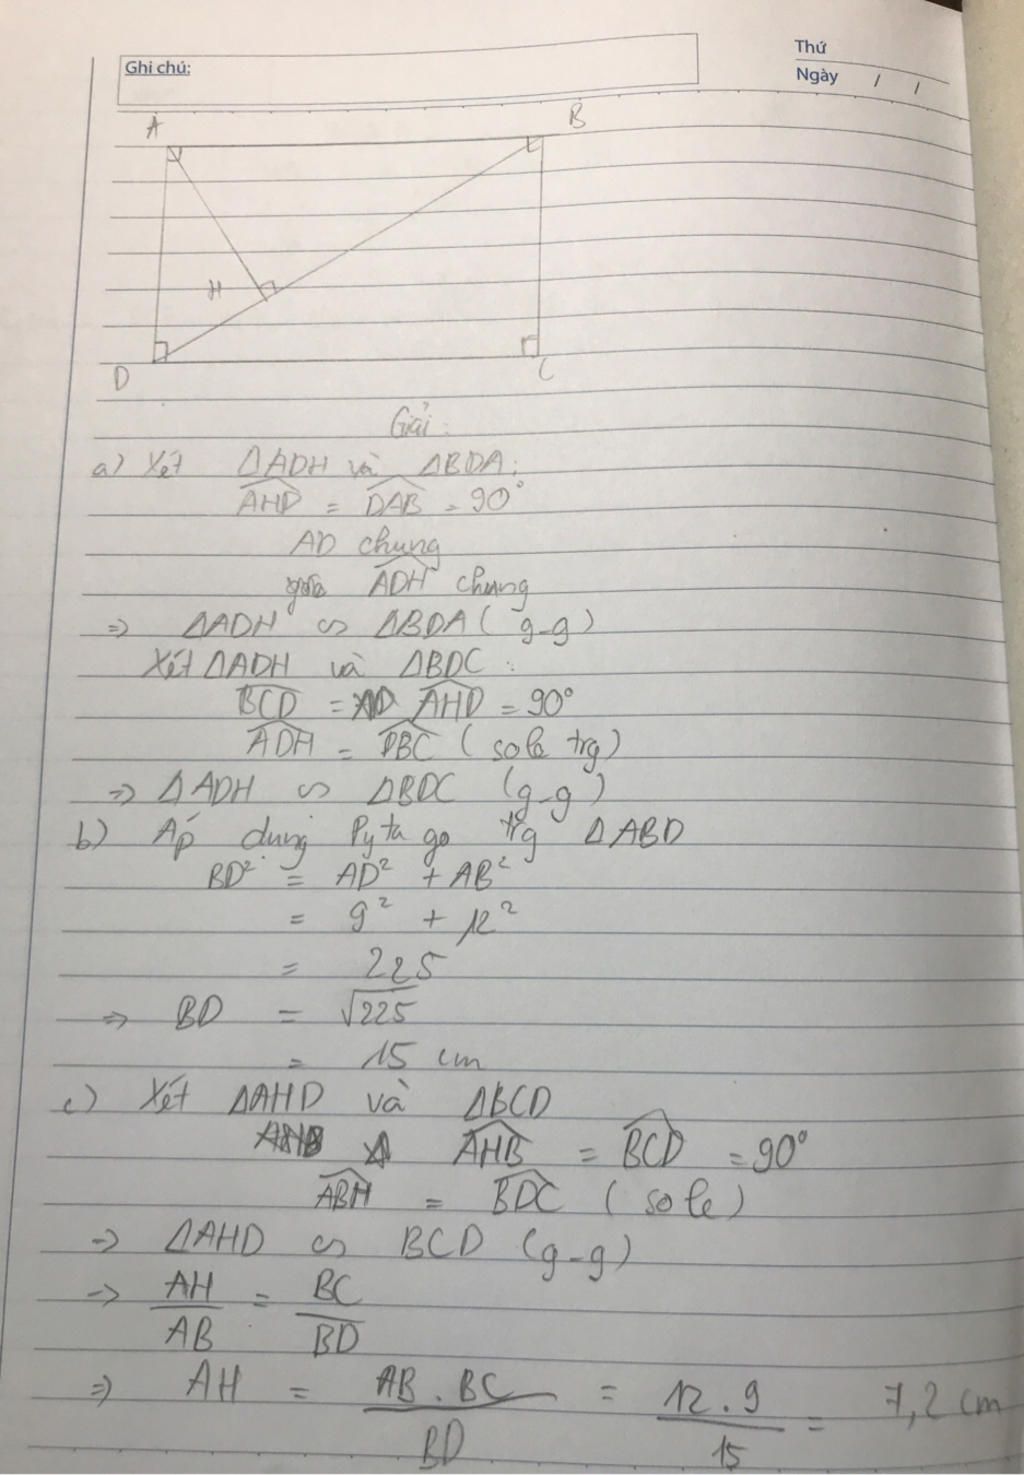 Ghi chú:
Thứ
Ngày / /
A
B
H
D
C
Giải:
a) Xét ΔADH và ΔBDA:
AHD = DAB = 90°
AD chung
ADH chung
=> ΔADH ∽ ΔBDA (g-g)
Xét ΔADH và ΔBDC:
BCD = AHD = 90°
ADH = DBC (so le trg)
=> ΔADH ∽ ΔBDC (g-g)
b) Áp dụng Pytago trg ΔABD
BD² = AD² + AB²
= 9² + 12²
= 225
=> BD = √225
= 15 cm
c) Xét ΔAHD và ΔBCD
AHB = BCD = 90°
ABH = BDC (so le)
=> ΔAHD ∽ BCD (g-g)
=> AH/AB = BC/BD
=> AH = AB . BC/BD = 12 . 9/15 = 7,2 cm